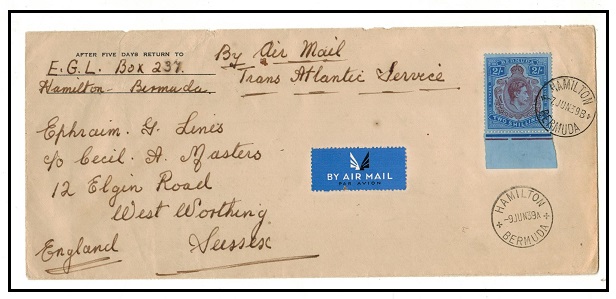 AFTER FIVE DAYS RETURN TO
E.G.L. Box 237
Hamilton - Bermuda
By Air Mail
Trans Atlantic Service
BERMUDA
2/- 2/-
TWO SHILLINGS
HAMILTON
BERMUDA
Ephraim. G. Lines
c/o Cecil. A. Masters
12 Elgin Road
West Worthing
Sussex
England
BY AIR MAIL
PAR AVION
HAMILTON
-9 JUN 39
BERMUDA